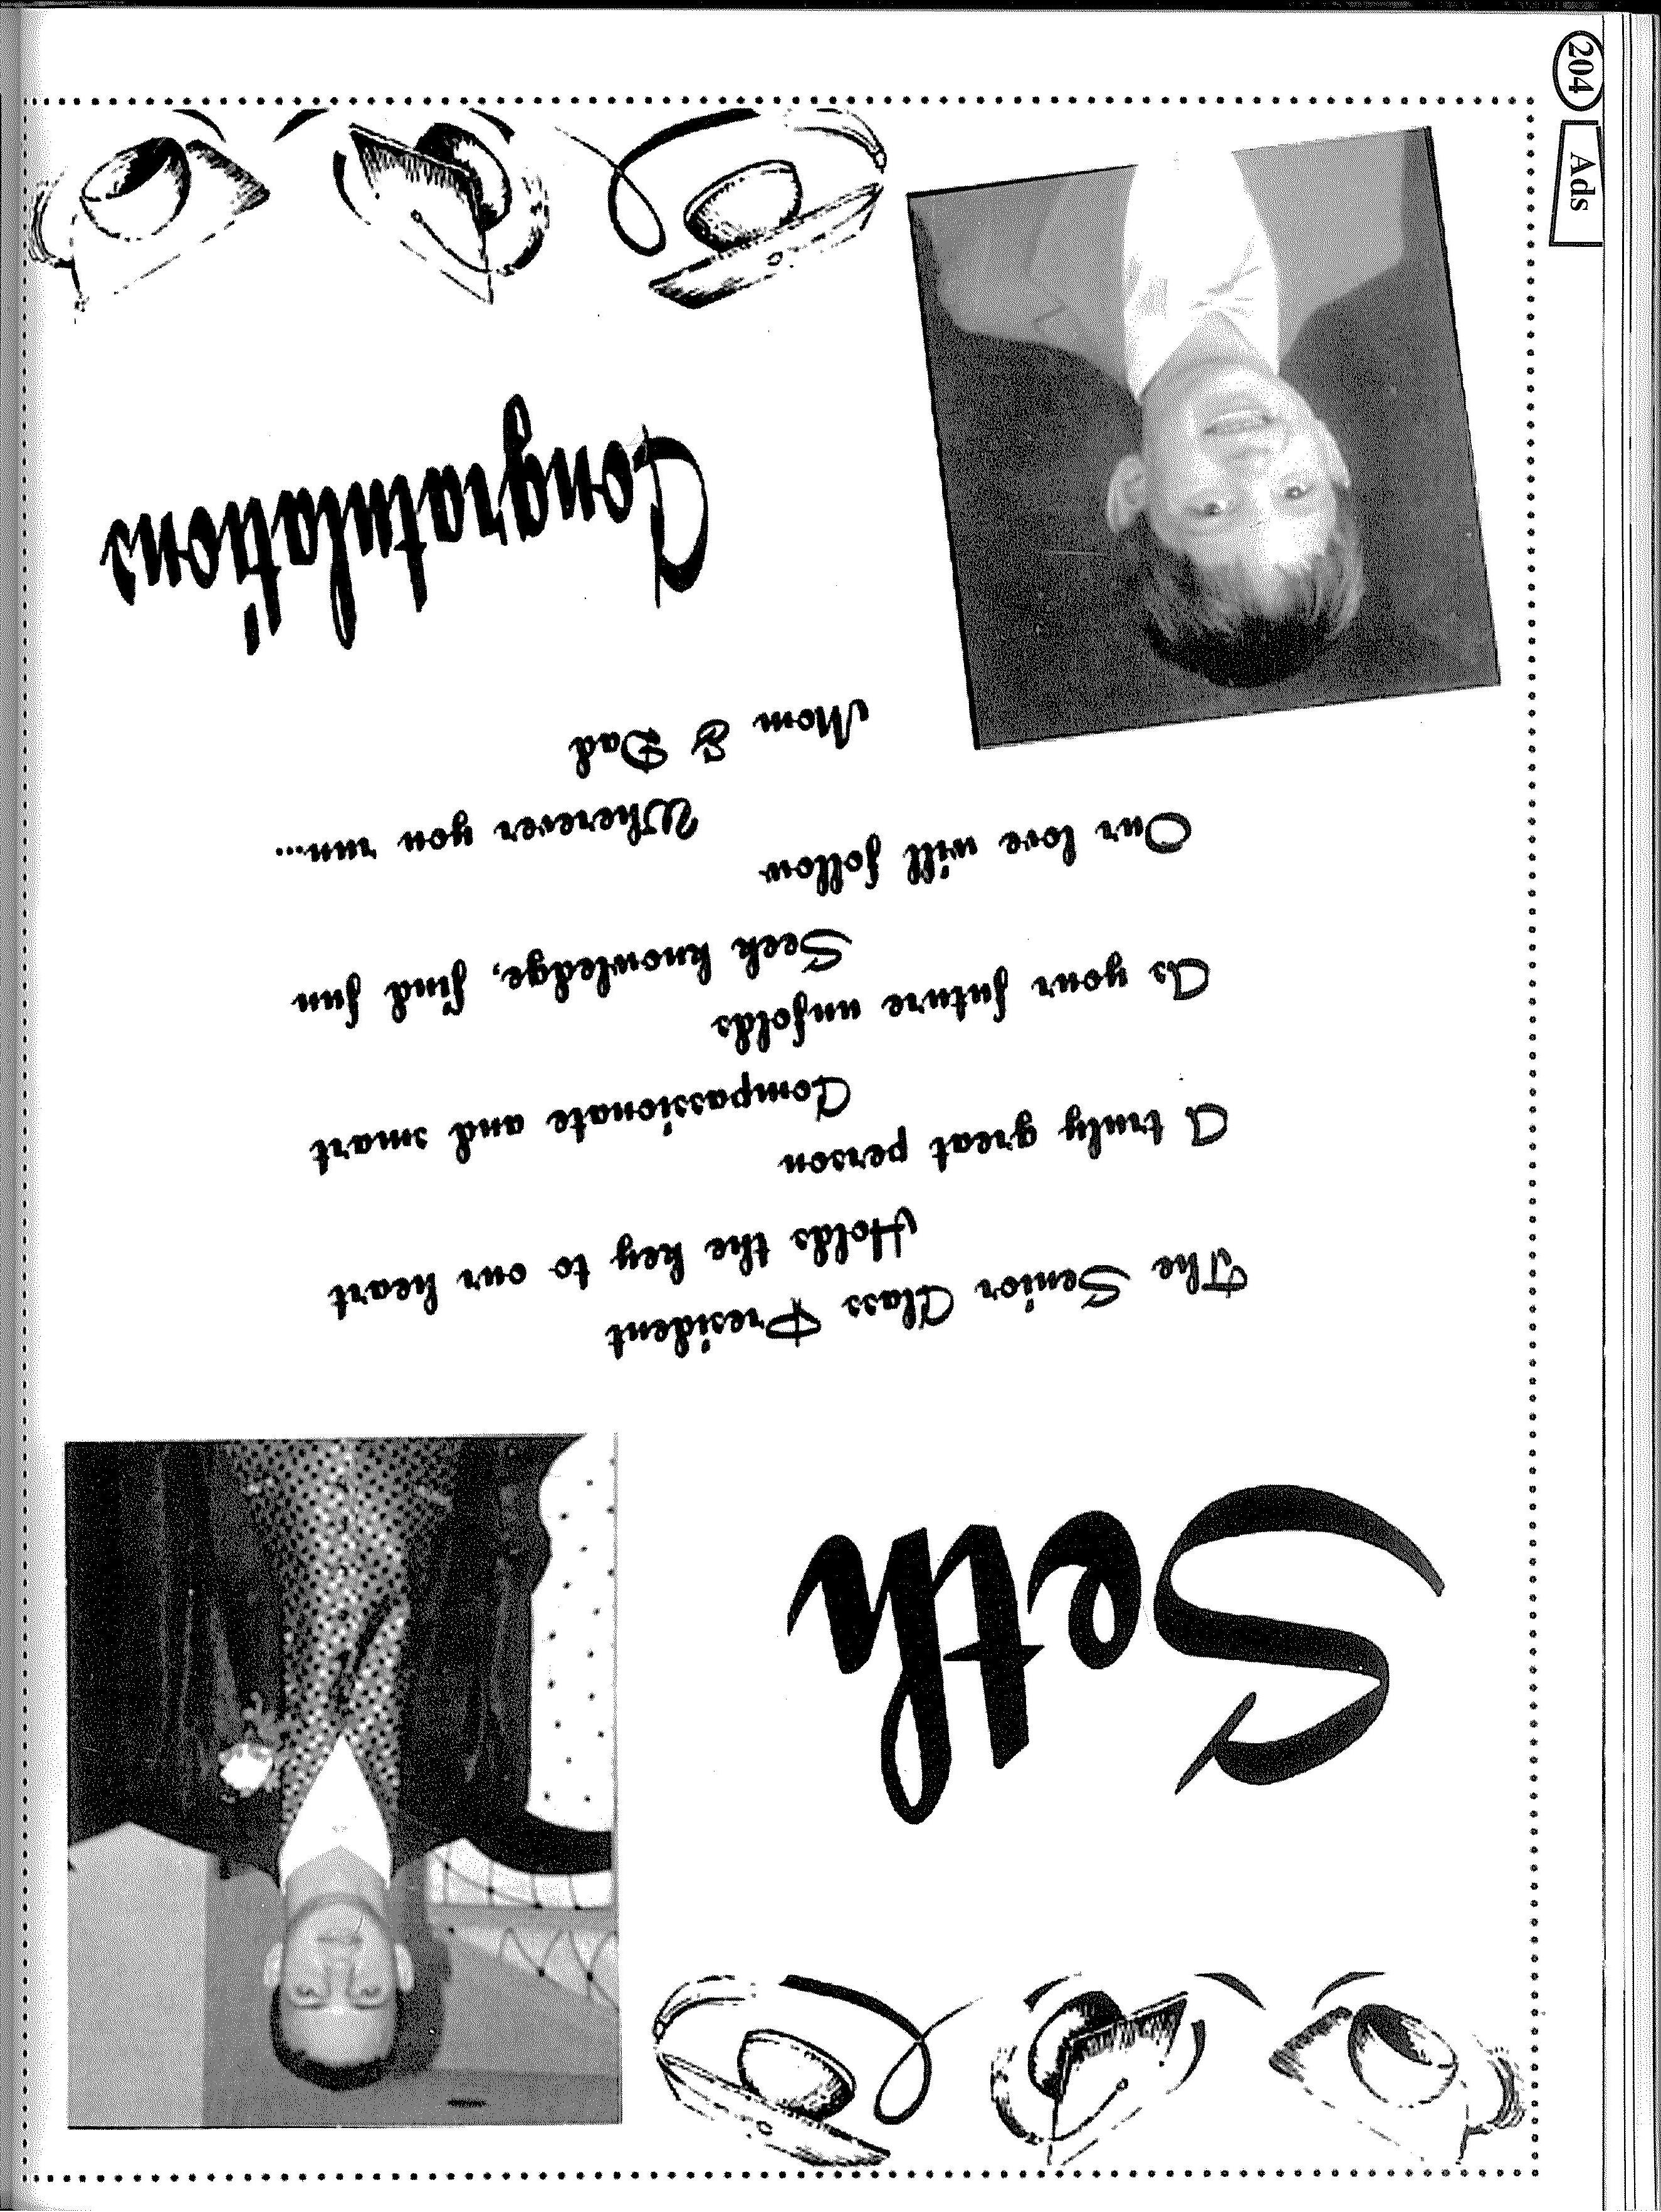 Seth
The Senior Class President
Holds the key to our heart
A truly great person
Compassionate and smart
As your future unfolds
Seek knowledge, find fun
Our love will follow
Wherever you run...
Mom & Dad
Congratulations
204
Ads